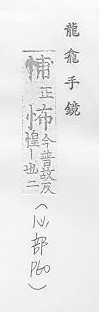 龍龕手鏡
悑正怖今普故反
惶丨也二
(心部
P60)